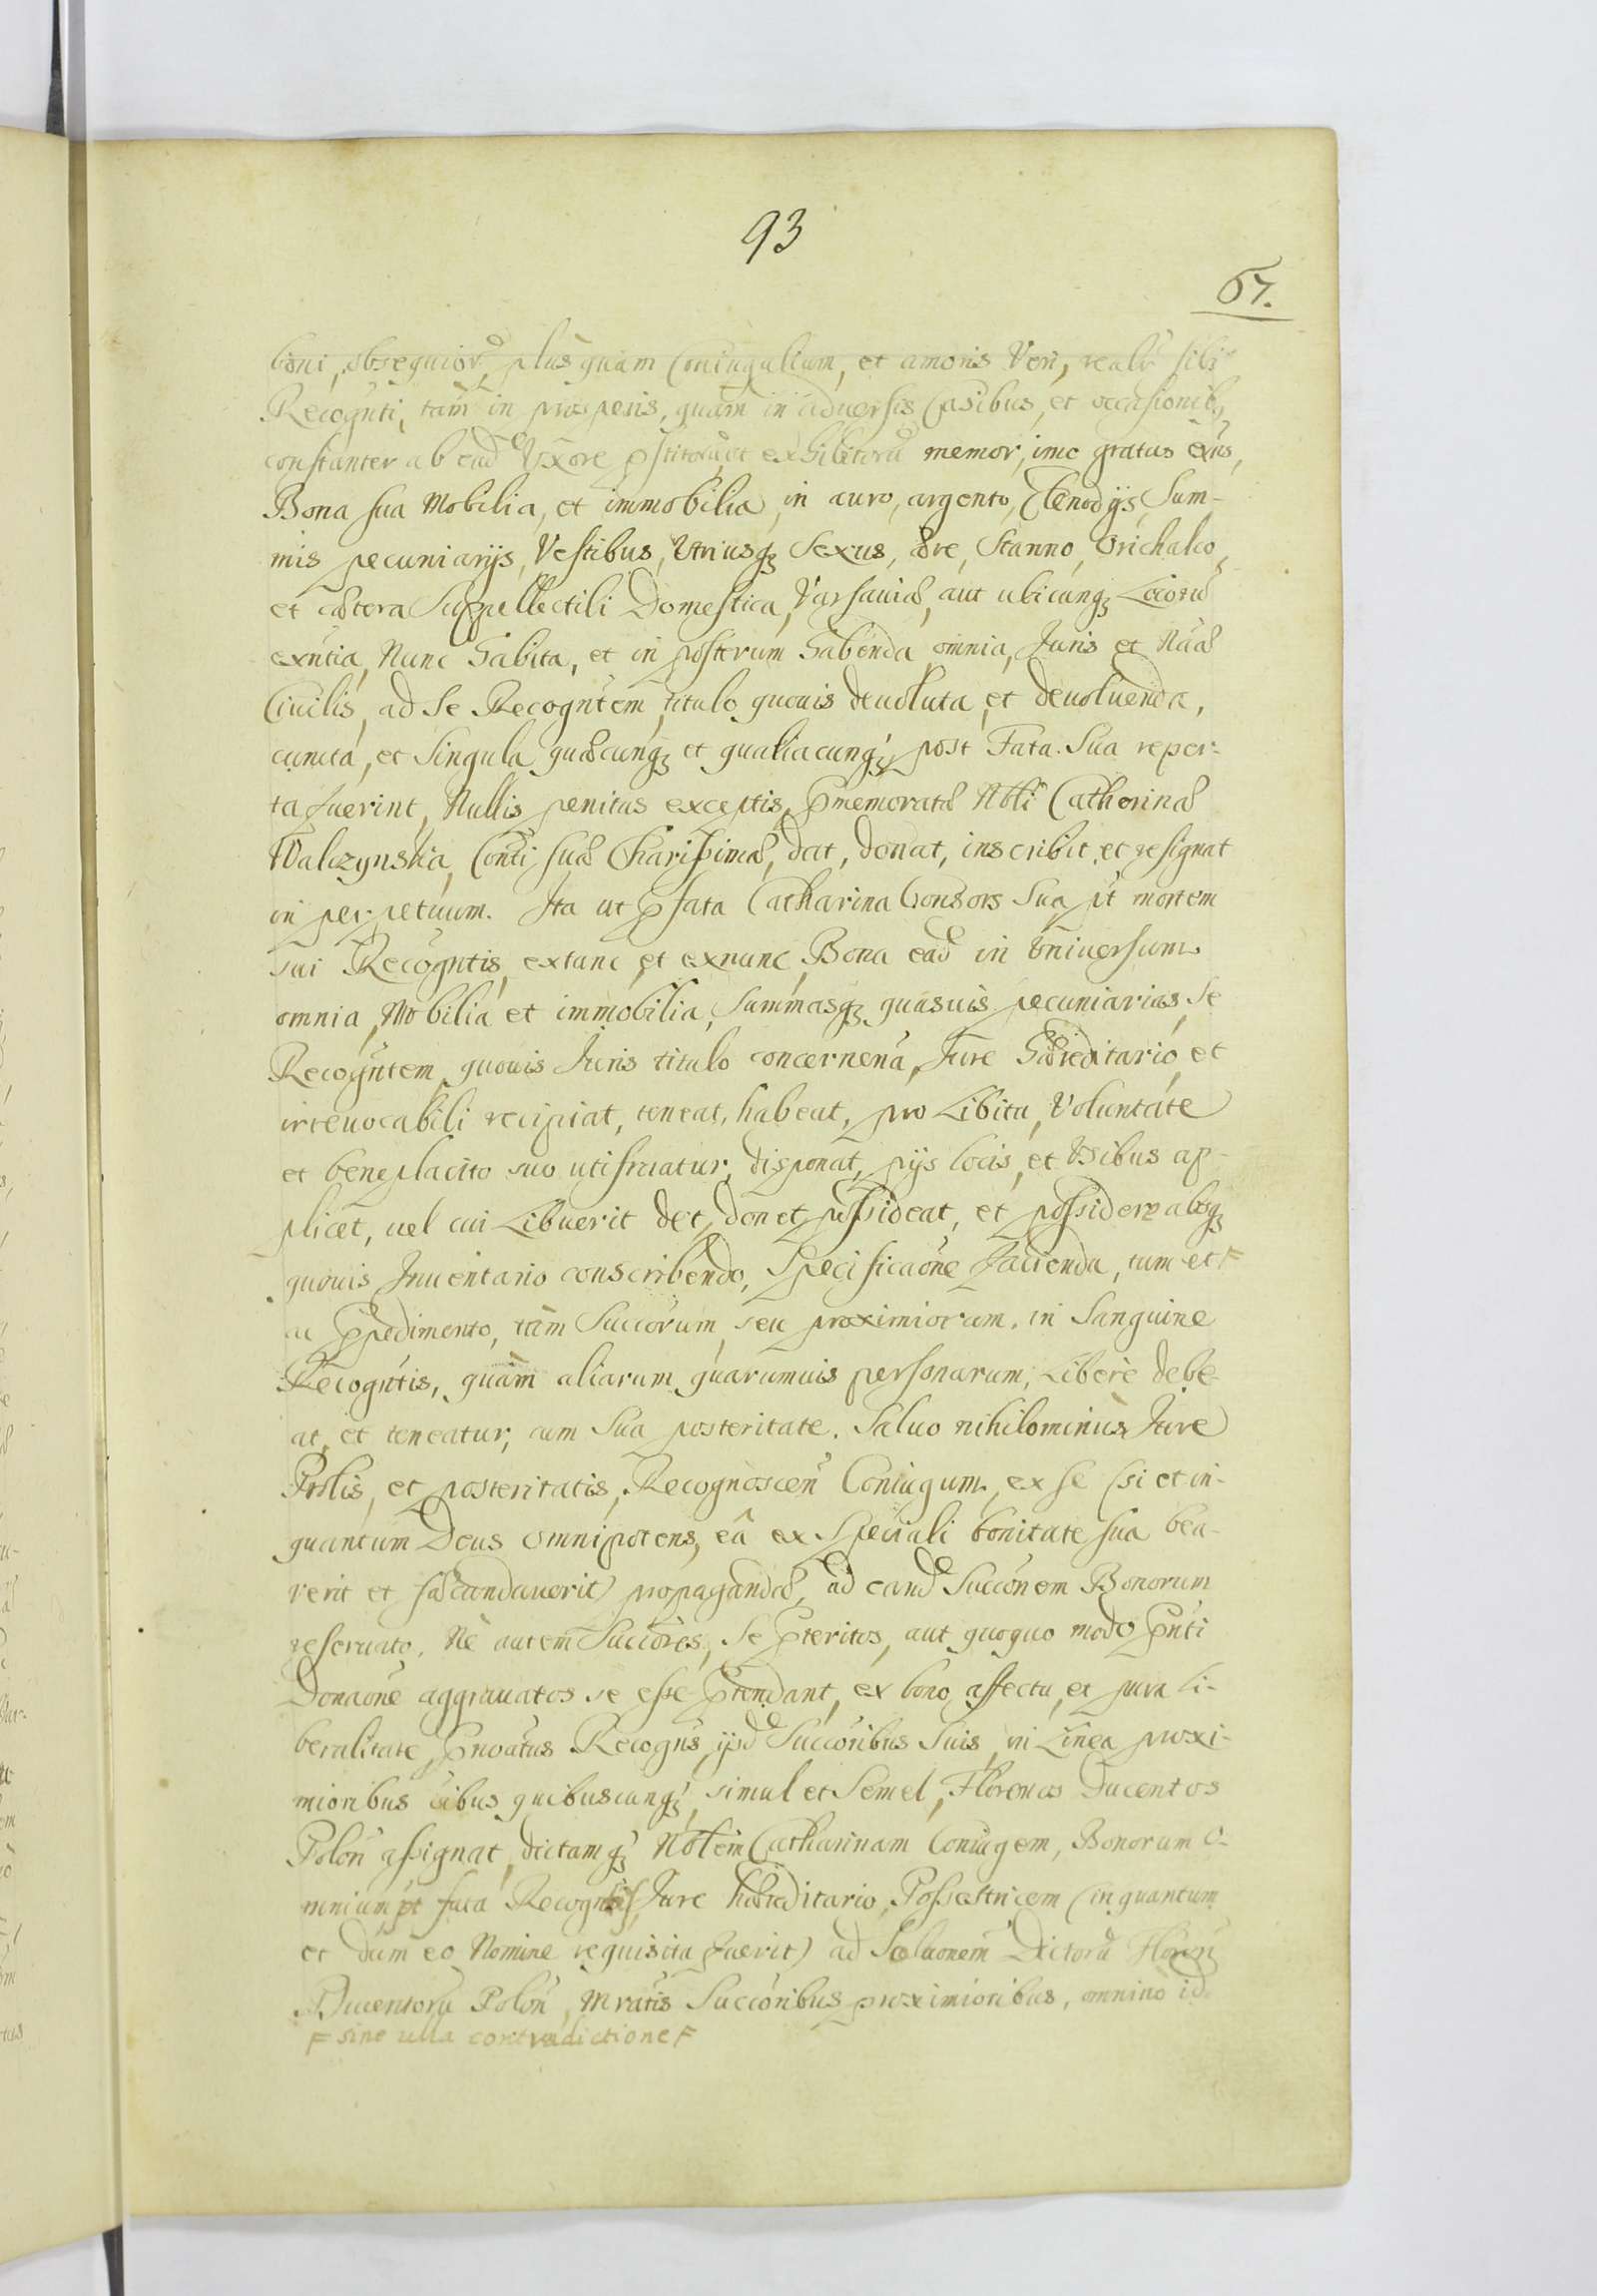 93
67.
boni, obsequior, plus quam Coniugalium, et amoris Veri, realr sibi
Recognti, tam in prosperis, quam in aduersis Casibus, et occasionib,
constanter ab ead Vxore pstitoru, et exhibitoru memor, imo gratus exns,
Bona sua Mobilia, et immobilia, in auro, argento, Clenodijs, Sum-
mis pecuniarijs, Vestibus, Vtriusq Sexus, ære, Stanno, Orichalco,
et cætera Supellectili Domestica, Varsauiæ, aut ubicunq Locoru
exntia, Nunc habita, et in posterum habenda omnia, Juris et Naæ
Ciuilis, ad Se Recogntem, titulo quouis deuoluta, et deuoluenda,
cuncta, et Singula quæcunq et qualiacunq, post Fata Sua reper-
ta fuerint, Nullis penitus exceptis, pmemoratæ Nobli Catherinæ
Walczynskia, Conti suæ Charissimæ, dat, donat, inscribit, et resignat
in perpetuum. Ita ut pfata Catharina Consors Sua pt mortem
sui Recogntis, extunc, et exnunc, Bona ead in Vniuersum
omnia, Mobilia et immobilia, Summasq quasuis pecuniarias, Se
Recogntem, quouis Juris titulo concernena, Jure Hæreditario, et
irreuocabili recipiat, teneat, habeat, pro Libitu, Voluntate
et beneplacito suo utifruatur, disponat, pijs locis, et Vsibus ap-
plicet, uel cui Libuerit det, donet, possideat, et possidere absq
quouis Inuentario conscribendo, Specificaone facienda, tum et F
ac ppedimento, tam Succorum, seu proximiorum, in Sanguine
Recogntis, quam aliarum quarumuis personarum, Libere debe-
at, et teneatur, cum Sua posteritate. Saluo nihilominus Jure
Prolis, et posteritatis, Recognoscen Coniugum, ex se (si et in-
quantum Deus Omnipotens, eâ ex Speciali bonitate sua bea-
verit et fæcundauerit) propagandæ, ad eand Succonem Bonorum
reseruato. Ne autem Succores, Se pteritos, aut quoquo modo pnti
Donaone aggrauatos se esse ptendant, ex bono affectu, et pura li-
beralitate, pnoatus Recogns, ijsd Succoribus Suis, in Linea proxi-
mioribus quibuscunq, simul et Semel, Florenos Ducentos
Polon assignat, dictamq Noblem Catharinam Coniugem, Bonorum o-
mnium pt fata Recogntis, Jure hæreditario, Possestricem (in quantum
et dum eo Nomine requisita fuerit) ad Soluonem Dictoru Floren
Ducentoru Polon, Mratis Succoribus proximioribus, omnino id
F sine ulla contradictione F